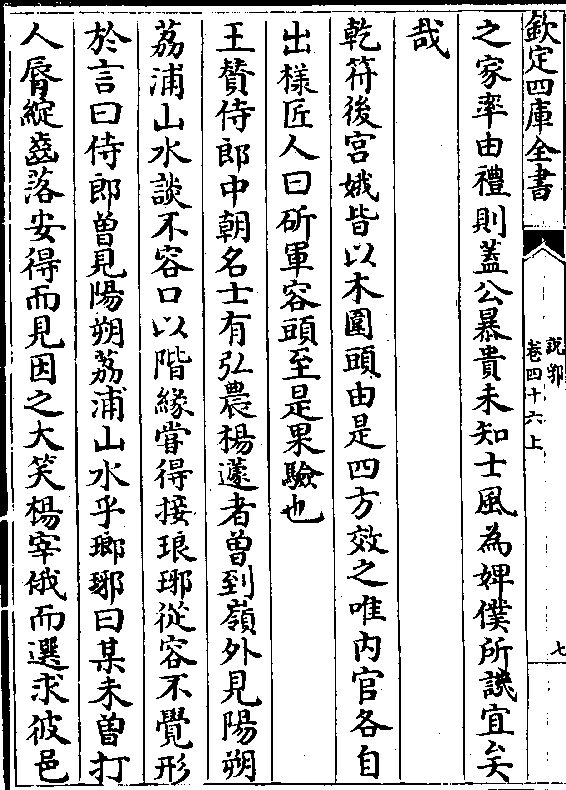 欽定四庫全書
說郛
卷四十六上
七
之家率由禮則蓋公暴貴未知士風為婢僕所譏宜矣
哉
乾符後宮娥皆以木圍頭由是四方效之唯内官各自
出樣匠人曰斫軍容頭至是果驗也
王贊侍郎中朝名士有弘農楊蘧者曾到嶺外見陽朔
荔浦山水談不容口以階緣嘗得接琅琊從容不覺形
於言曰侍郎曽見陽朔荔浦山水乎瑯琊曰某未曽打
人唇綻齒落安得而見因之大笑楊宰俄而選求彼邑